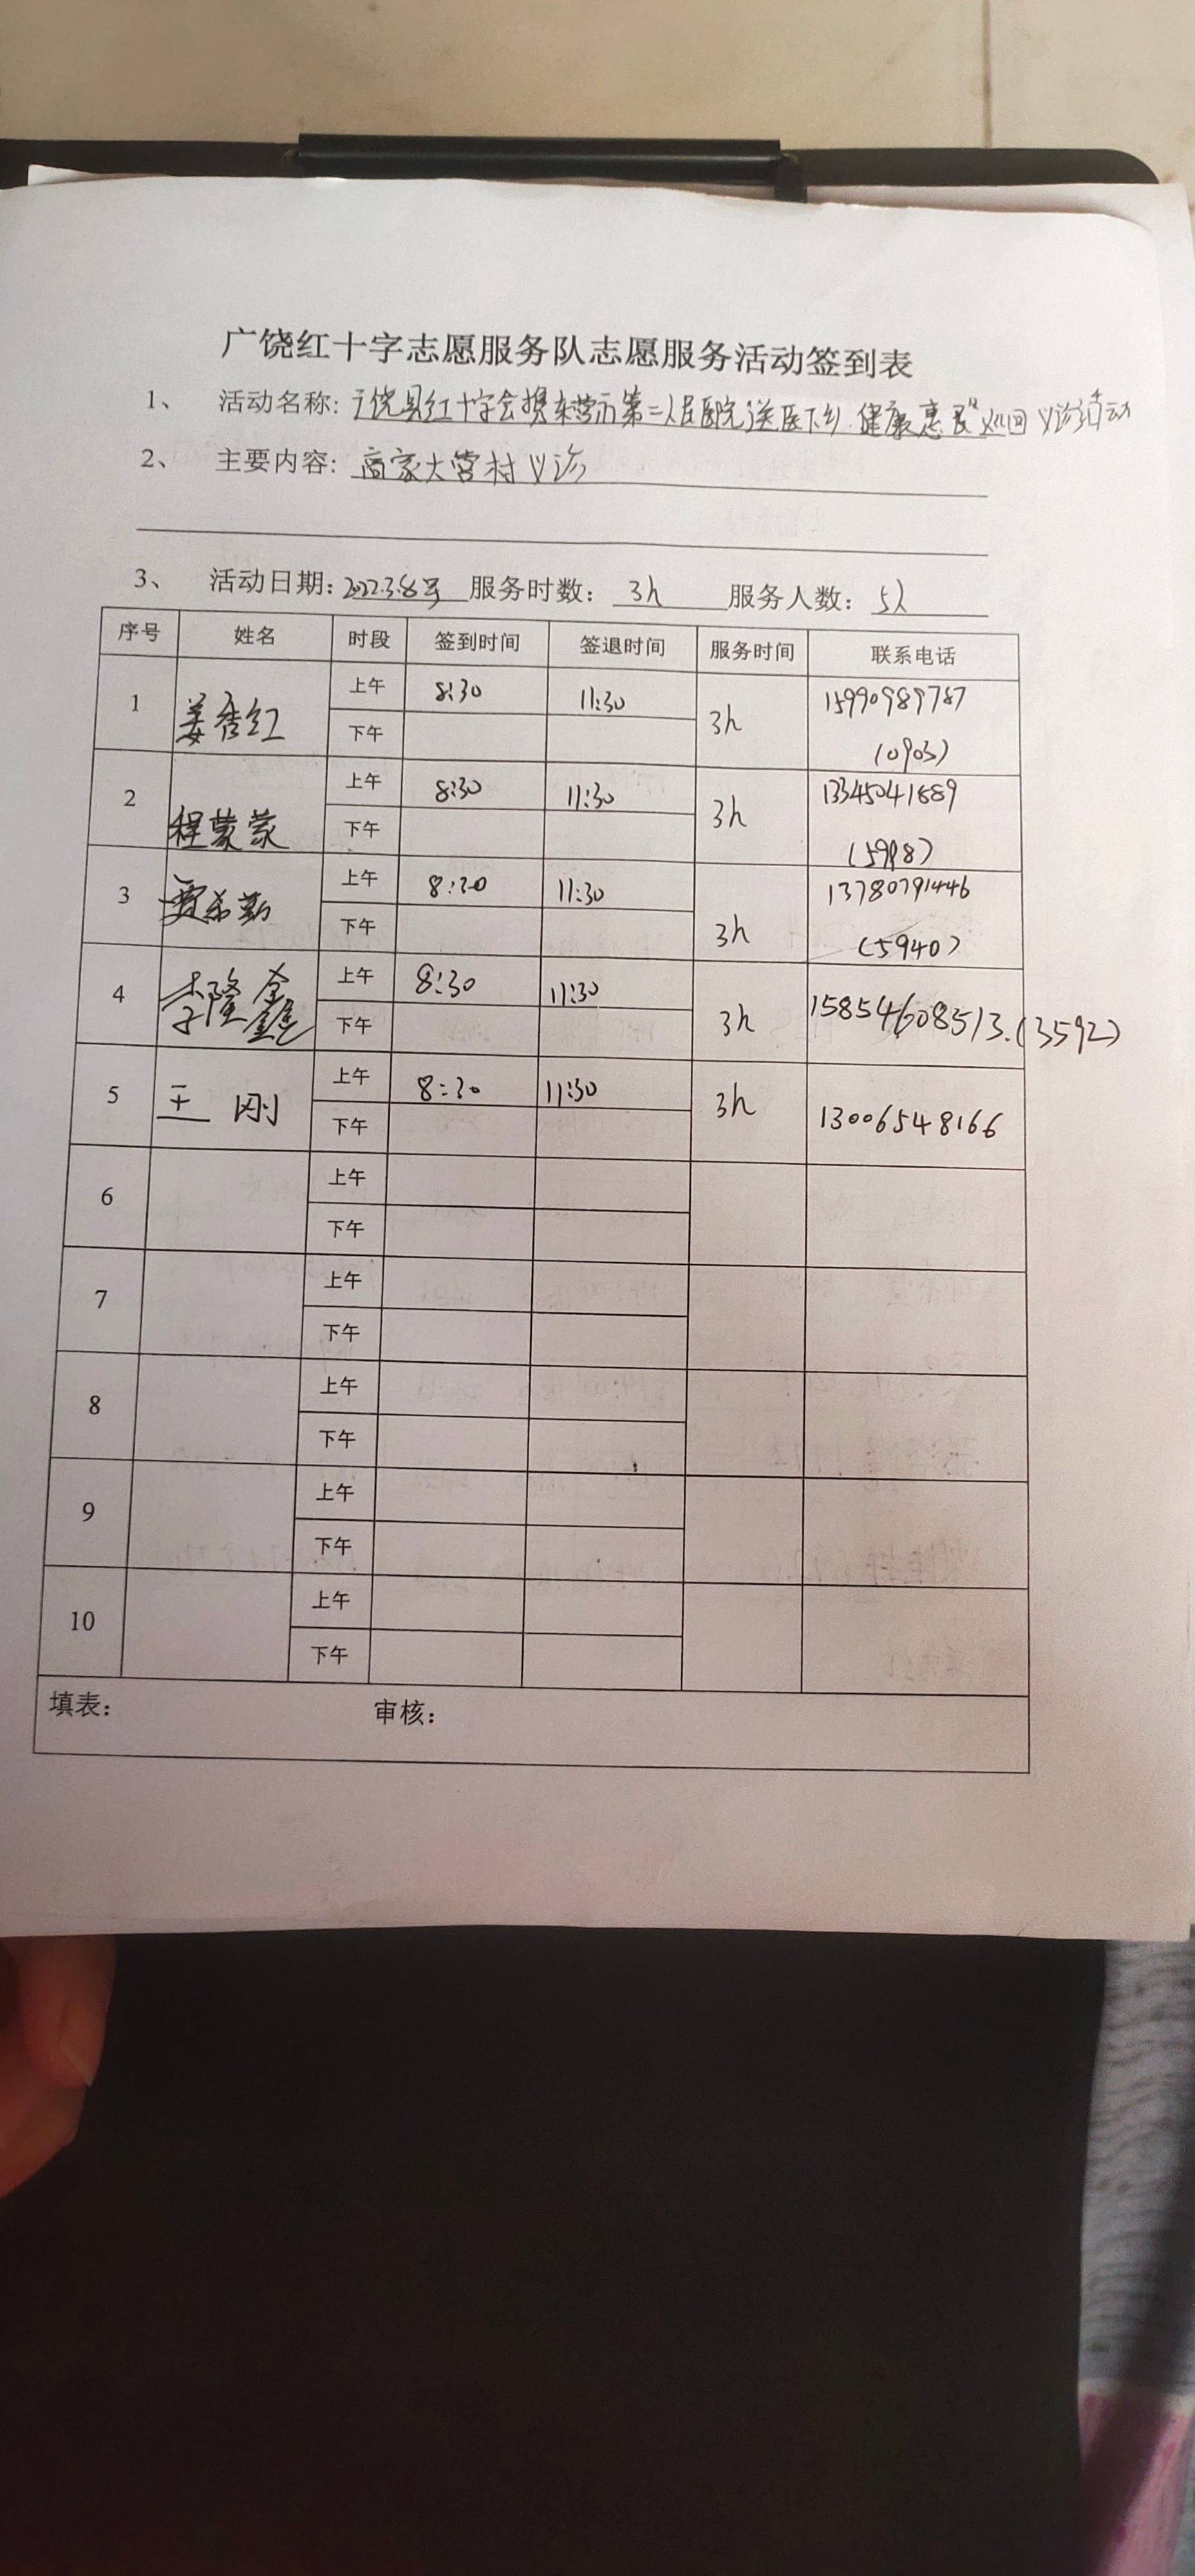 广饶红十字志愿服务队志愿服务活动签到表
1、 活动名称: 广饶县红十字会携东营市第二人民医院送医下乡.健康惠民"巡回义诊活动
2、 主要内容: 商家大营村义诊
3、 活动日期: 2022.3.8号 服务时数: 3h 服务人数: 5人
序号 姓名 时段 签到时间 签退时间 服务时间 联系电话
1 姜香红 上午 8:30 11:30 3h 15990989787
下午 (0903)
2 程蒙蒙 上午 8:30 11:30 3h 13345041889
下午 (5998)
3 贾希勤 上午 8:30 11:30 3h 13780791446
下午 (5940)
4 李隆鑫 上午 8:30 11:30 3h 15854608513.(3592)
下午
5 王刚 上午 8:30 11:30 3h 13006548166
下午
6 上午
下午
7 上午
下午
8 上午
下午
9 上午
下午
10 上午
下午
填表: 审核: